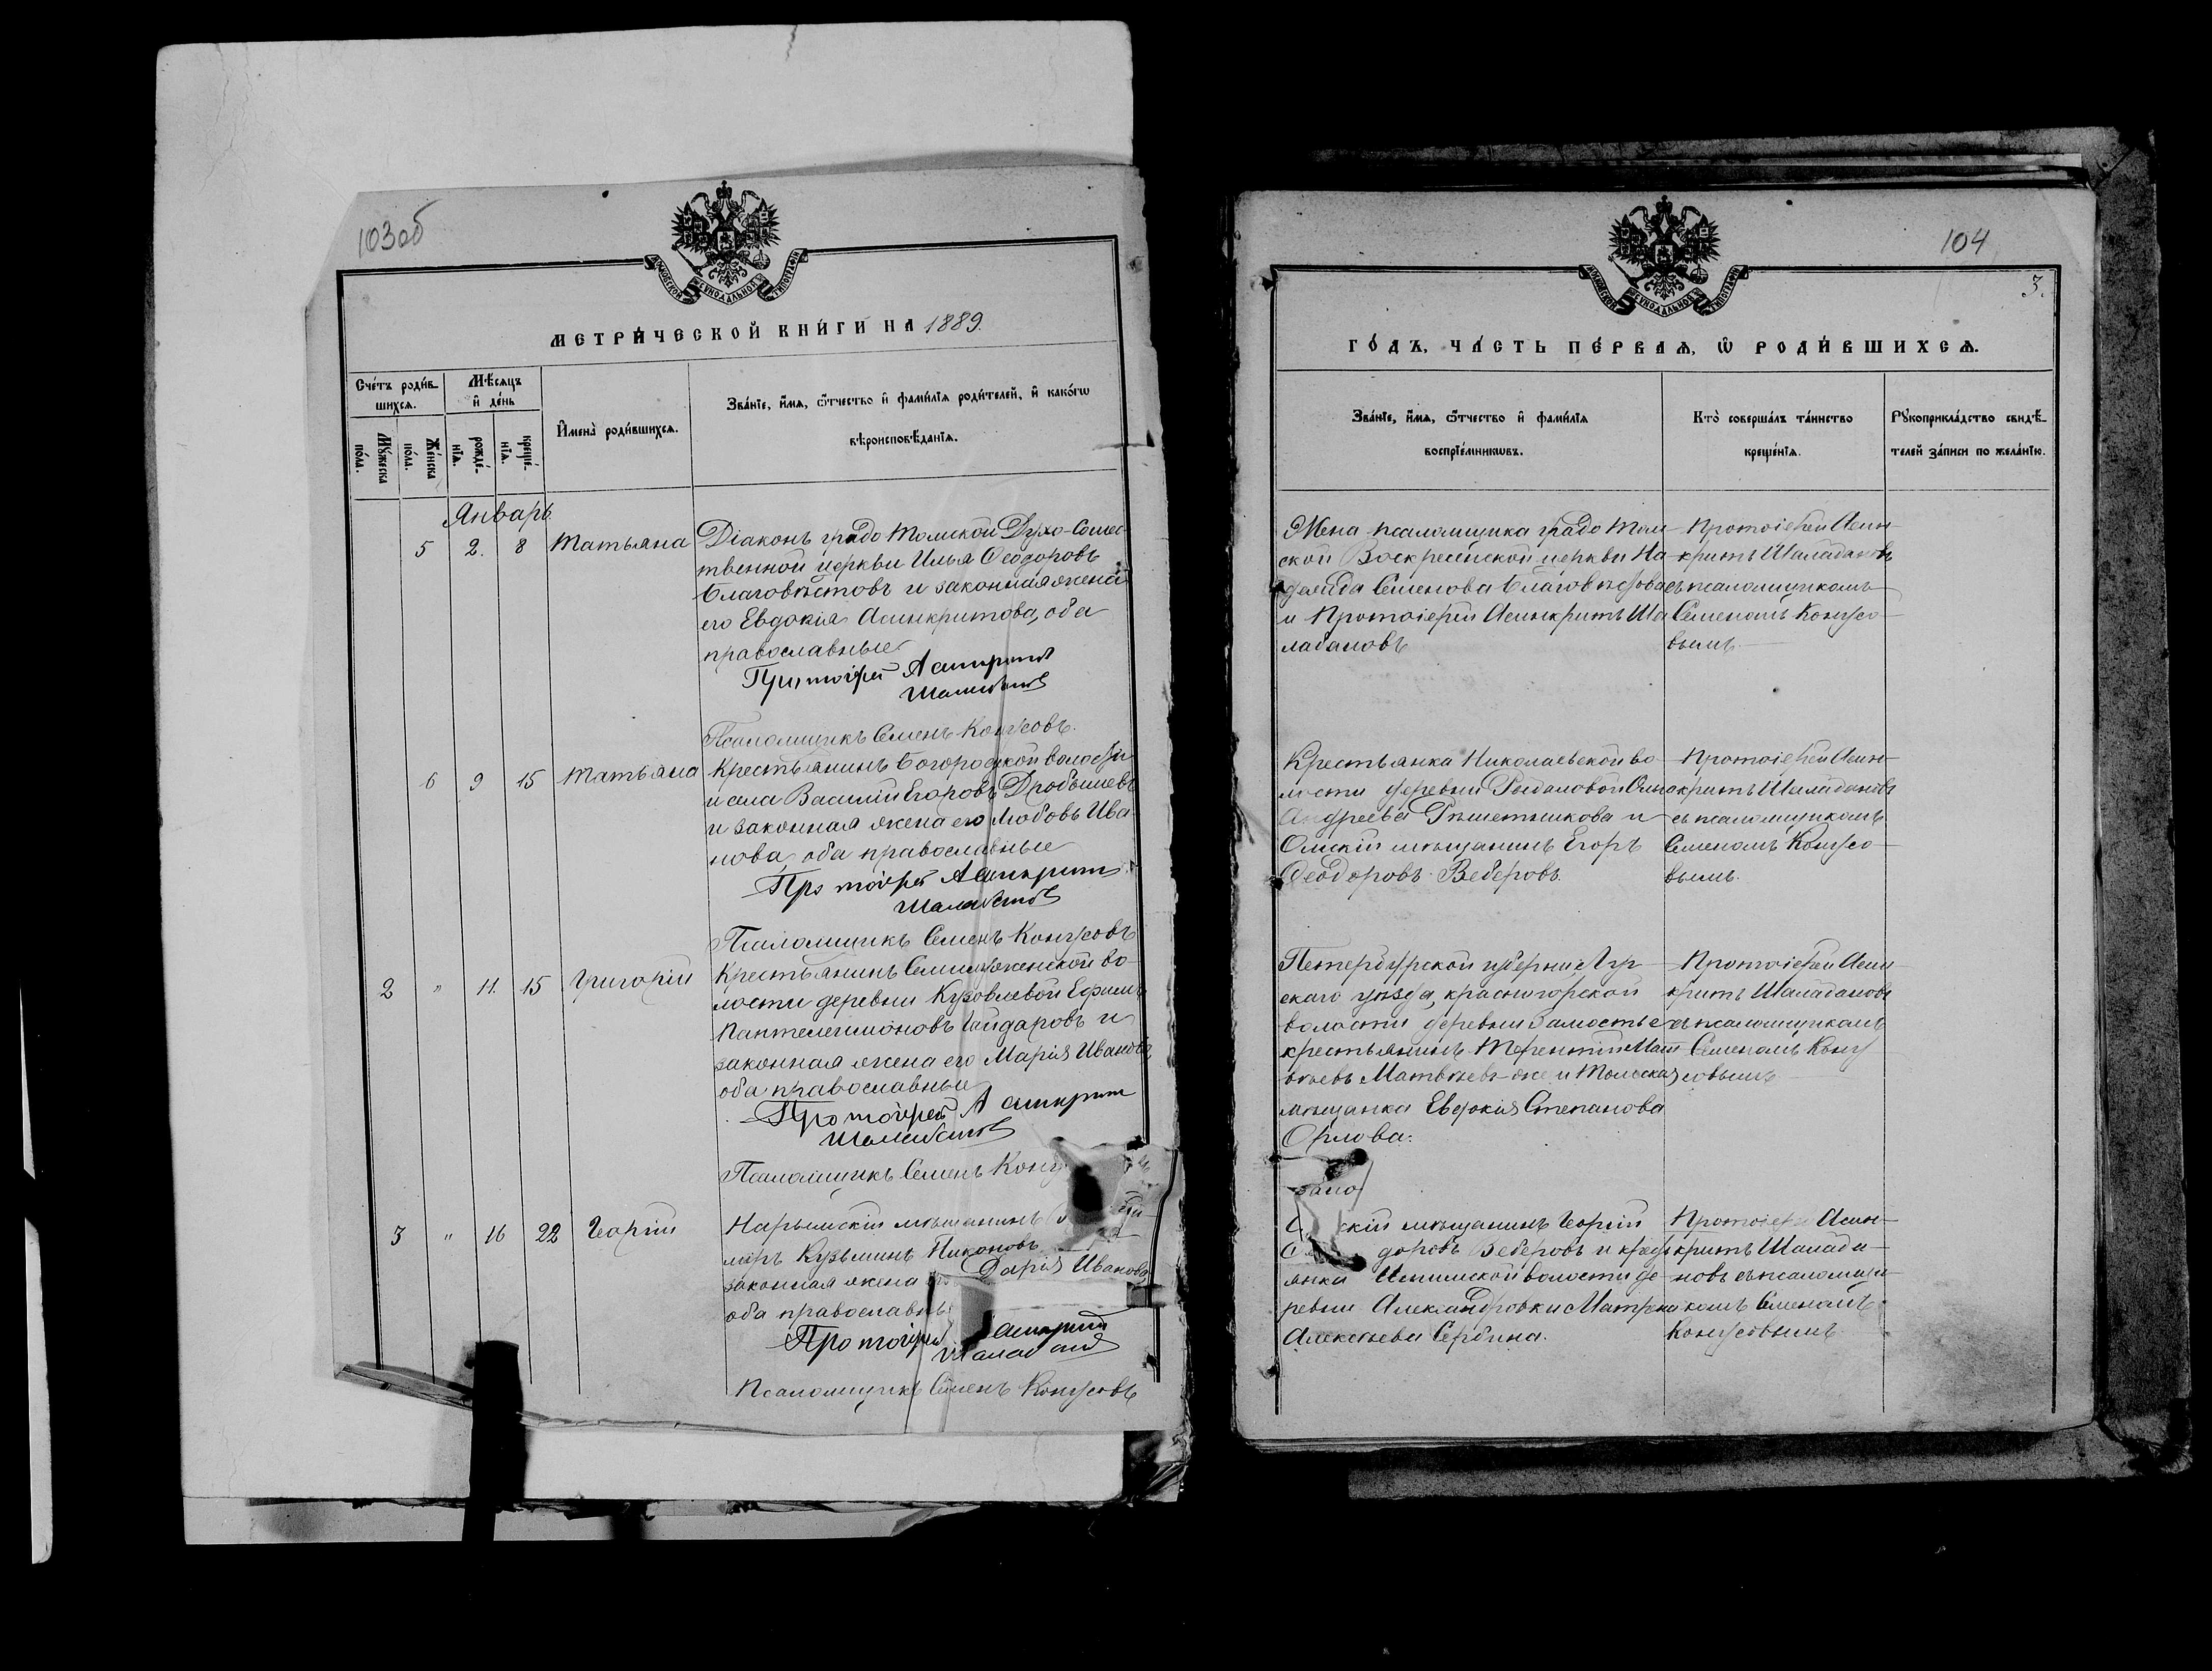 103об
МОСКОВСКОЙ СѴНОДАЛЬНОЙ ТИПОГРАФІИ
МЕТРИ́ЧЕСКОЙ КНИ́ГИ НА 1889.
Счéтъ роди́в-
шихсѧ.
Мѣсѧцъ
и҆ дéнь
И҆менà роди́вшихсѧ.
Звáнїе, и҆́мѧ, ѻ҆́тчество и҆ фами́лїѧ роди́телей, и҆ какóгѡ
вѣроисповѣ́данїѧ.
Мꙋ́жеска
пóла.
Жéнска
пóла.
рождé-
нїѧ.
крещé-
нїѧ.
Январь
5 2. 8 Татьяна Діаконъ градо Томской Духо-Сошес-
твенной церкви Илья Ѳеодоровъ
Благовѣстовъ и законная жена
его Евдокія Асинкритова, оба
православные
Протоіерей Асинкритъ
Шалабановъ
Псаломщикъ Семенъ Конусовъ.
6 9 15 Татьяна Крестьянинъ Богородской волости
и села Василій Егоровъ Дробышевъ
и законная жена его Любовь Ива-
нова, оба православные
Протоіерей Асинкритъ
Шалабановъ
Псаломщикъ Семенъ Конусовъ
2 " 11. 15 Григорій Крестьянинъ Семилуженской во-
лости деревни Кузовлевой Ефимъ
Пантелеимоновъ Гайдаровъ и
законная жена его Марія Иванова,
оба православные
Протоіерей Асинкритъ
Шалабановъ
Псаломщикъ Семенъ
3 " 16 22 Георгій Нарымскій мѣщанинъ
миръ Кузьминъ Никоновъ
законная жена Дарія Иванова
оба православны
Протоіерей Асинкритъ
Шалабановъ
Псаломщикъ Семенъ Конусовъ
104
3.
МОСКОВСКОЙ СѴНОДАЛЬНОЙ ТИПОГРАФІИ
ГО́ДЪ, ЧА́СТЬ ПЕ́РВАѦ, Ѿ РОДИ́ВШИХСѦ.
Звáнїе, и҆́мѧ, ѻ҆́тчество и҆ фами́лїѧ
воспрїéмникѡвъ.
Ктò совершáлъ тáинство
крещéнїѧ.
Рꙋкоприклáдство свидѣ́-
телей зáписи по желáнїю.
Жена псаломщика градо Том-
ской Воскресенской церкви На-
дежда Семенова Благовѣстова
и Протоіерей Асинкритъ Ша
лабановъ
Протоіерей Асин-
критъ Шалабановъ
съ псаломщикомъ
Семеномъ Конусо-
вымъ.
Крестьянка Николаевской во-
лости деревни Рыбаловой
Андреева Рѣшетникова и
Омскій мѣщанинъ Егоръ
Ѳеодоровъ Веберовъ.
Протоіерей Асин-
критъ Шалабановъ
съ псаломщикомъ
Семеномъ Конусо-
вымъ.
Петербургской губерніи
скаго уѣзда, красногорской
волости деревни Замостье
крестьянинъ Терентій Мат
вѣевъ Матвѣевъ-же и Томская
мѣщанка Евдокія Степанова
Орлова.
Протоіерей Асин-
критъ Шалабановъ
съ псаломщикомъ
Семеномъ Кону
совымъ
скій мѣщанинъ Георгій
доровъ Веберовъ и крест
янка Ишимской волости де-
ревни Александровки Матрена
Алексѣева Сербина.
Протоіерей Асин-
критъ Шалаба-
новъ съ псаломщи-
комъ Семеномъ
Конусовымъ.